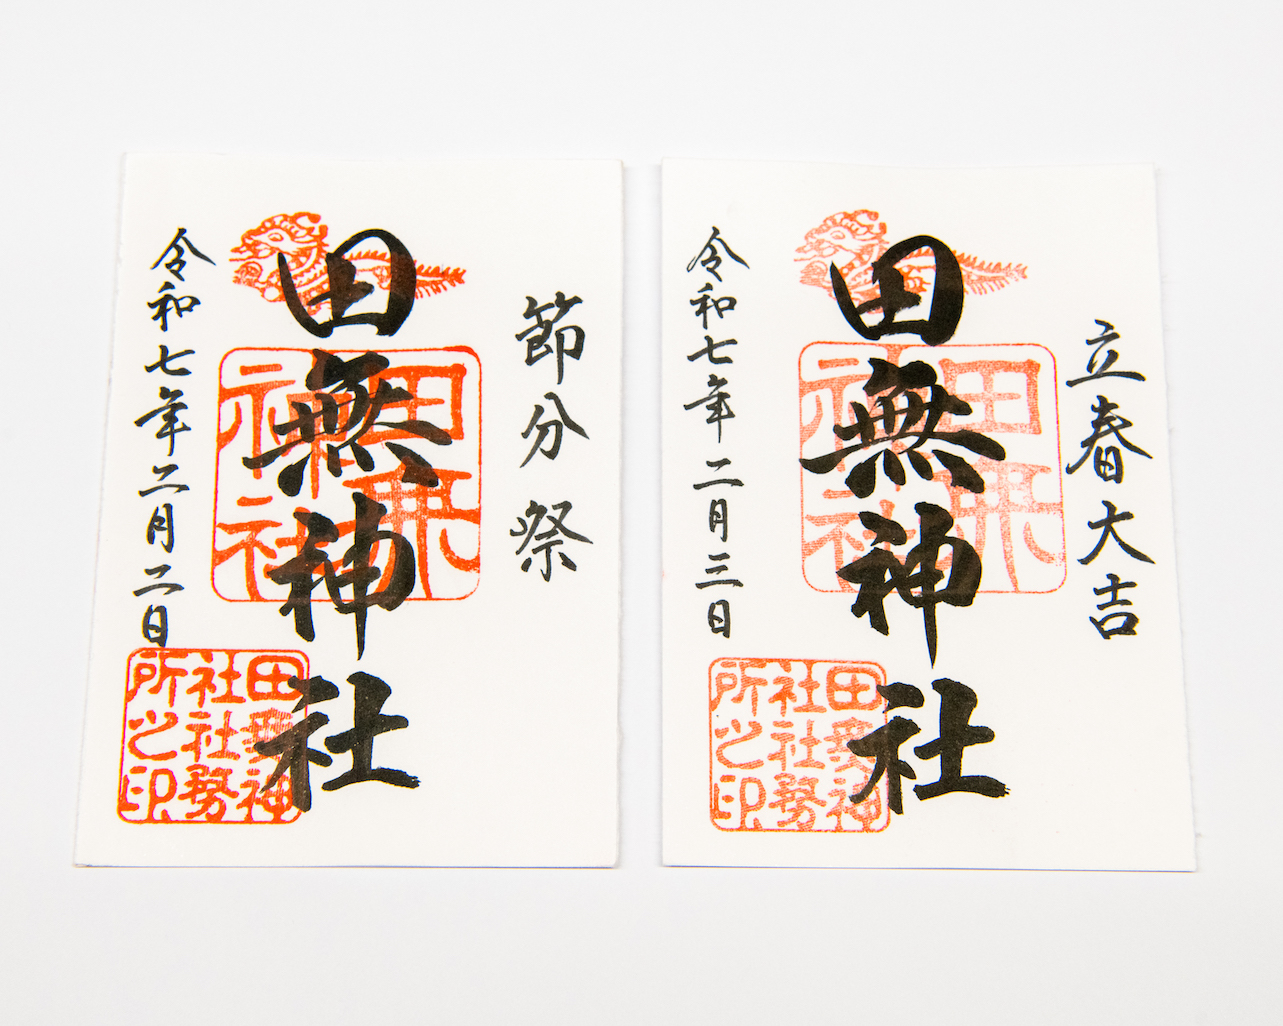 節分祭
田無神社
田無神社
令和七年二月二日
田無神
社社務
所之印
立春大吉
田無神社
田無神社
令和七年二月三日
田無神
社社務
所之印